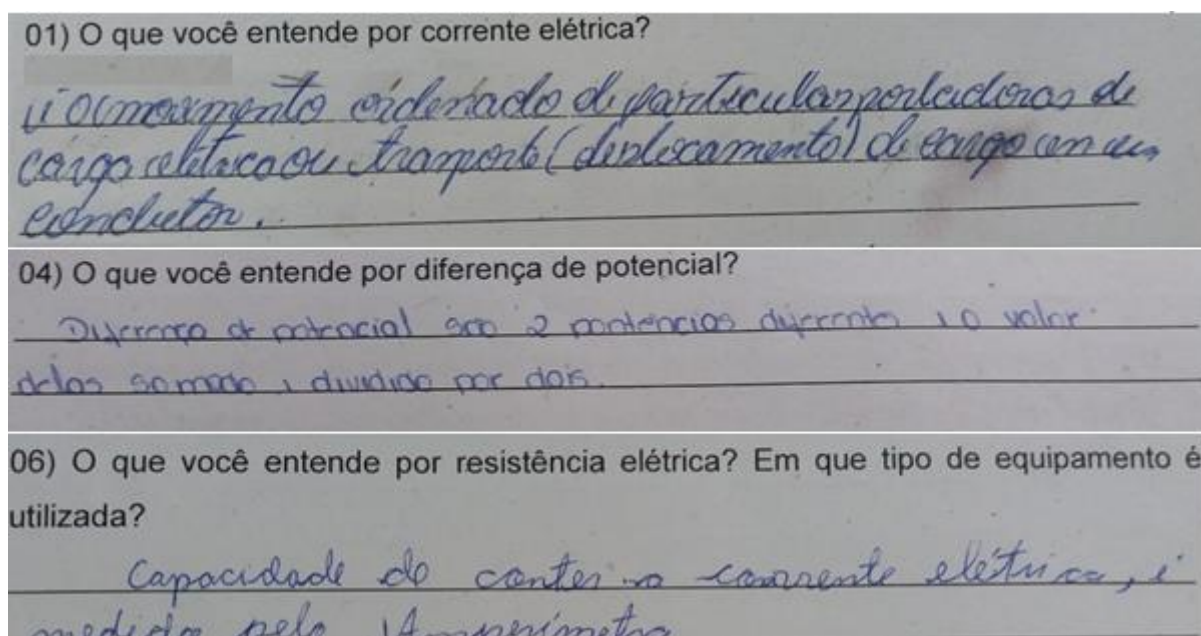 01) O que você entende por corrente elétrica?
é o movimento ordenado de particulas portadoras de
carga eletrica ou transporte (deslocamento) de carga em um
condutor.
04) O que você entende por diferença de potencial?
Diferença de potencial são 2 diferentes o valor
delas somado dividido por dois.
06) O que você entende por resistência elétrica? Em que tipo de equipamento é
utilizada?
Capacidade de conter a corrente elétrica, é
medida pelo Amperimetro